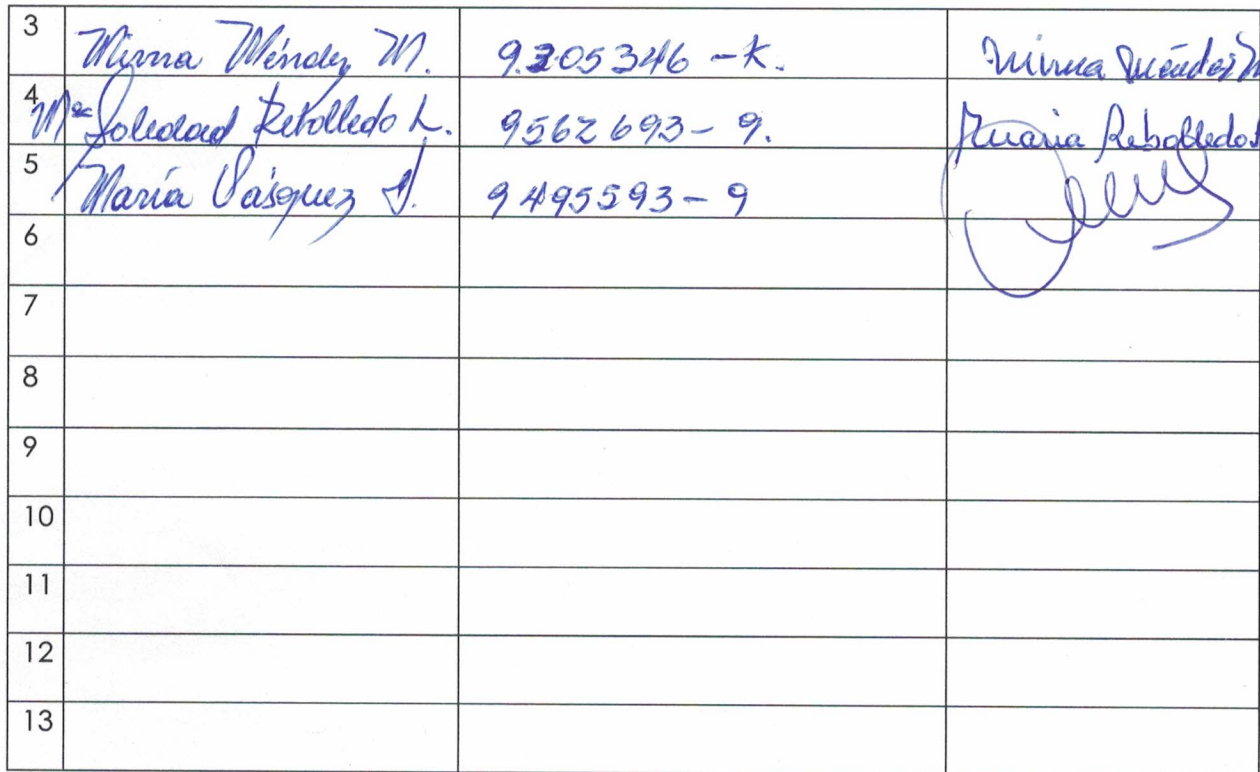 3 Mirna Méndez M. 9.205346 -K. Mirna Méndez M
4 Mª Soledad Rebolledo L. 9562693- 9. Maria Rebolledo
5 María Vásquez 9495593- 9
6
7
8
9
10
11
12
13